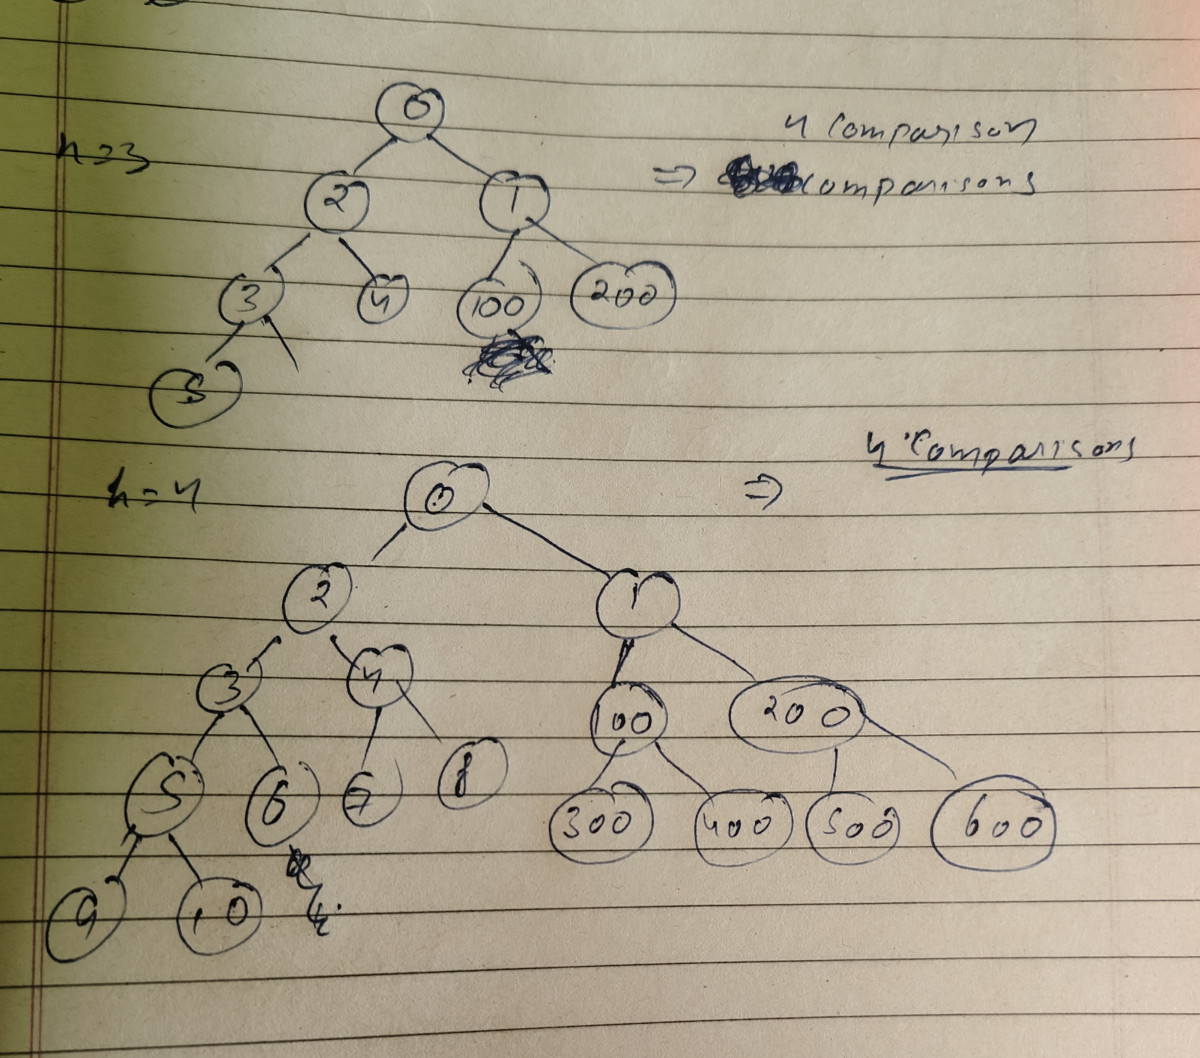 0
4 Comparison
h=3
2 1
⇒ comparisons
3 4 100 200
5
4 Comparisons
h=4 0 ⇒
2 1
3 4 100 200
5 6 7 8
300 400 500 600
9 10